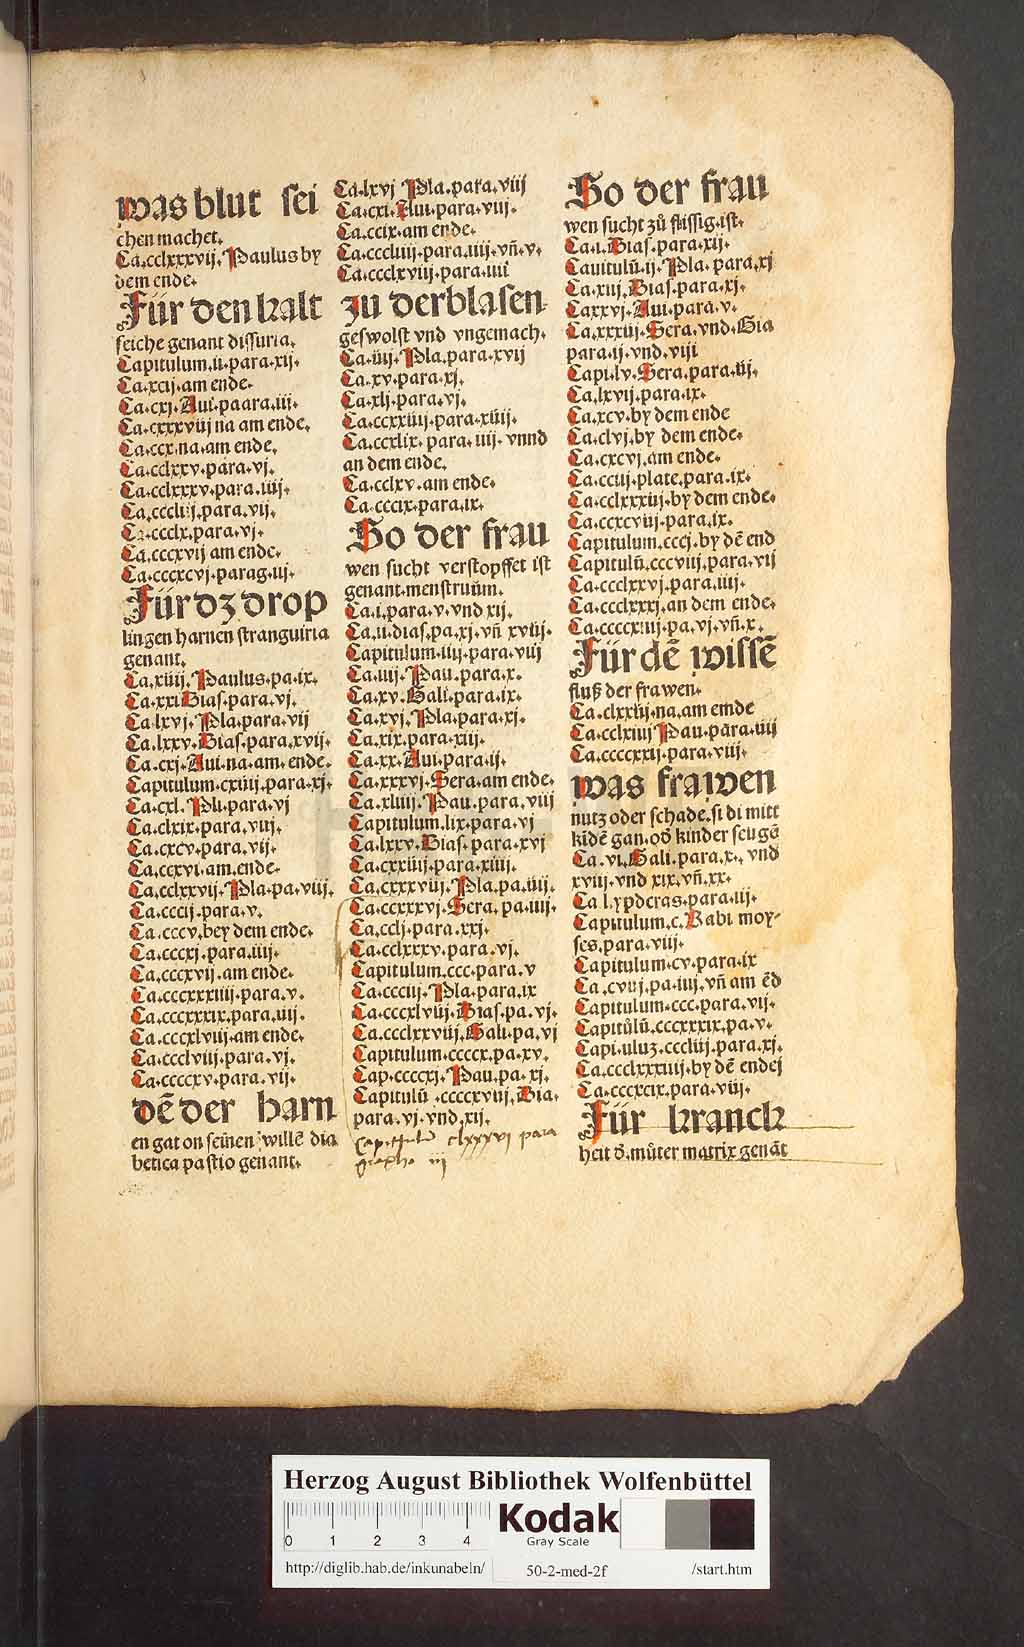 was blut sei
chen machet.
Ca.cclxxxvij.Paulus by
dem ende.
Für den kalt
seiche genant dissuria.
Capitulum.ii.para.xij.
Ca.xcij.am ende.
Ca.cxj.Aui.paara.iij.
Ca.cxxxviij na am ende.
Ca.ccx.na.am ende.
Ca.cclxxv.para.vj.
Ca.cclxxxv.para.iiij.
Ca.cccliij.para.vij.
Ca.ccclx.para.vj.
Ca.cccxvij am ende.
Ca.cccxcvj.parag.iij.
Für dz drop
lingen harnen stranguiria
genant.
Ca.xiiij.Paulus.pa.ix.
Ca.xxi.Dias.para.vj.
Ca.lxvj.Pla.para.vij
Ca.lxxv.Dias.para.xvij.
Ca.cxj.Aui.na.am.ende.
Capitulum.cxiiij.para.xj.
Ca.cxl.Pli.para.vj
Ca.clxix.para.viij.
Ca.cxcv.para.vij.
Ca.ccxvi.am.ende.
Ca.cclxxvij.Pla.pa.viij.
Ca.cccij.para.v.
Ca.cccv.bey dem ende.
Ca.cccxj.para.iiij.
Ca.cccxvij.am ende.
Ca.cccxxxiiij.para.v.
Ca.cccxxxix.para.iij.
Ca.cccxlviij.am ende.
Ca.ccclviij.para.vj.
Ca.ccccxv.para.vij.
dē der harn
en gat on seinen willē dia
betica pastio genant.
Ca.lxvj Pla.para.viij
Ca.cxi.Aui.para.viij.
Ca.ccix.am ende.
Ca.cccliiij.para.iiij.vn̄.v.
Ca.ccclxviij.para.iiij
zu derblasen
geswolst vnd vngemach.
Ca.iiij.Pla.para.xvij
Ca.xv.para.xj.
Ca.xlj.para.vj.
Ca.ccxxiiij.para.xiiij.
Ca.ccxlix.para.iiij.vnnd
an dem ende.
Ca.cclxv.am ende.
Ca.cccix.para.ix.
So der frau
wen sucht verstopffet ist
genant.menstruūm.
Ca.i.para.v.vnd xij.
Ca.ii.dias.pa.xj.vn̄ xviij.
Capitulum.iiij.para.viij
Ca.iiij.Pau.para.x.
Ca.xv.Gali.para.ix.
Ca.xvj.Pla.para.xj.
Ca.xix.para.xiij.
Ca.xx.Aui.para.ij.
Ca.xxxvj.Sera.am ende.
Ca.xliiij.Pau.para.viij
Capitulum.lix.para.vj
Ca.lxxv.Dias.para.xvj
Ca.cxxiiij.para.xiiij.
Ca.cxxxviij.Pla.pa.iiij.
Ca.ccxxxvj.Sera.pa.iiij.
Ca.cclj.para.xxj.
Ca.cclxxxv.para.vj.
Capitulum.ccc.para.v
Ca.ccciij.Pla.para.ix
Ca.cccxlviij.Dias.pa.vj.
Ca.ccclxxviij.Gali.pa.vj
Capitulum.ccccx.pa.xv.
Cap.ccccxj.Pau.pa.xj.
Capitulū.ccccxviij.Dia.
para.vj.vnd.xij.
Capitulū clxxxvi para
grapho iij
So der frau
wen sucht zů flissig.ist.
Ca.i.Dias.para.xij.
Capitulū.ij.Pla.para.xj
Ca.xiij.Dias.para.xj.
Caxxvj.Aui.para.v.
Ca.xxxiij.Sera.vnd.Dia
para.ij.vnd.viij
Capi.lv.Sera.para.iij.
Ca.lxvij.para.ix.
Ca.xcv.by dem ende
Ca.clvj.by dem ende.
Ca.cxcvj.am ende.
Ca.cciij.plate.para.ix.
Ca.cclxxxiij.by dem ende.
Ca.ccxcviij.para.ix.
Capitulum.cccj.by dē end
Capitulū.cccviij.para.vij
Ca.ccclxxvj.para.iiij.
Ca.ccclxxxj.an dem ende.
Ca.ccccxiiij.pa.vj.vn̄.x.
Für dē wissē
fluß der frawen.
Ca.clxxiij.na.am emde
Ca.cclxiiij Pau.para.iiij
Ca.ccccxxij.para.viij.
was frawen
nutz oder schade.si di mitt
kīdē gan.od' kinder seugē
Ca.vi.Gali.para.x.vnd
xviij.vnd xix.vn̄.xx.
Ca l.ypocras.para.iij.
Capitulum.c.Rabi moy-
ses.para.viij.
Capitulum.cv.para.ix
Ca.cviij.pa.iij.vn̄ am ēd
Capitulum.ccc.para.vij.
Capitulū.cccxxxix.pa.v.
Capi.uluz.cccliij.para.xj.
Ca.ccclxxxiiij.by dē endej
Ca.cccxcix.para.viij.
Für kranck
heit d'.můter matrix genāt
Herzog August Bibliothek Wolfenbüttel
0 1 2 3 4
Kodak
Gray Scale
http://diglib.hab.de/inkunabeln/ 50-2-med-2f /start.htm